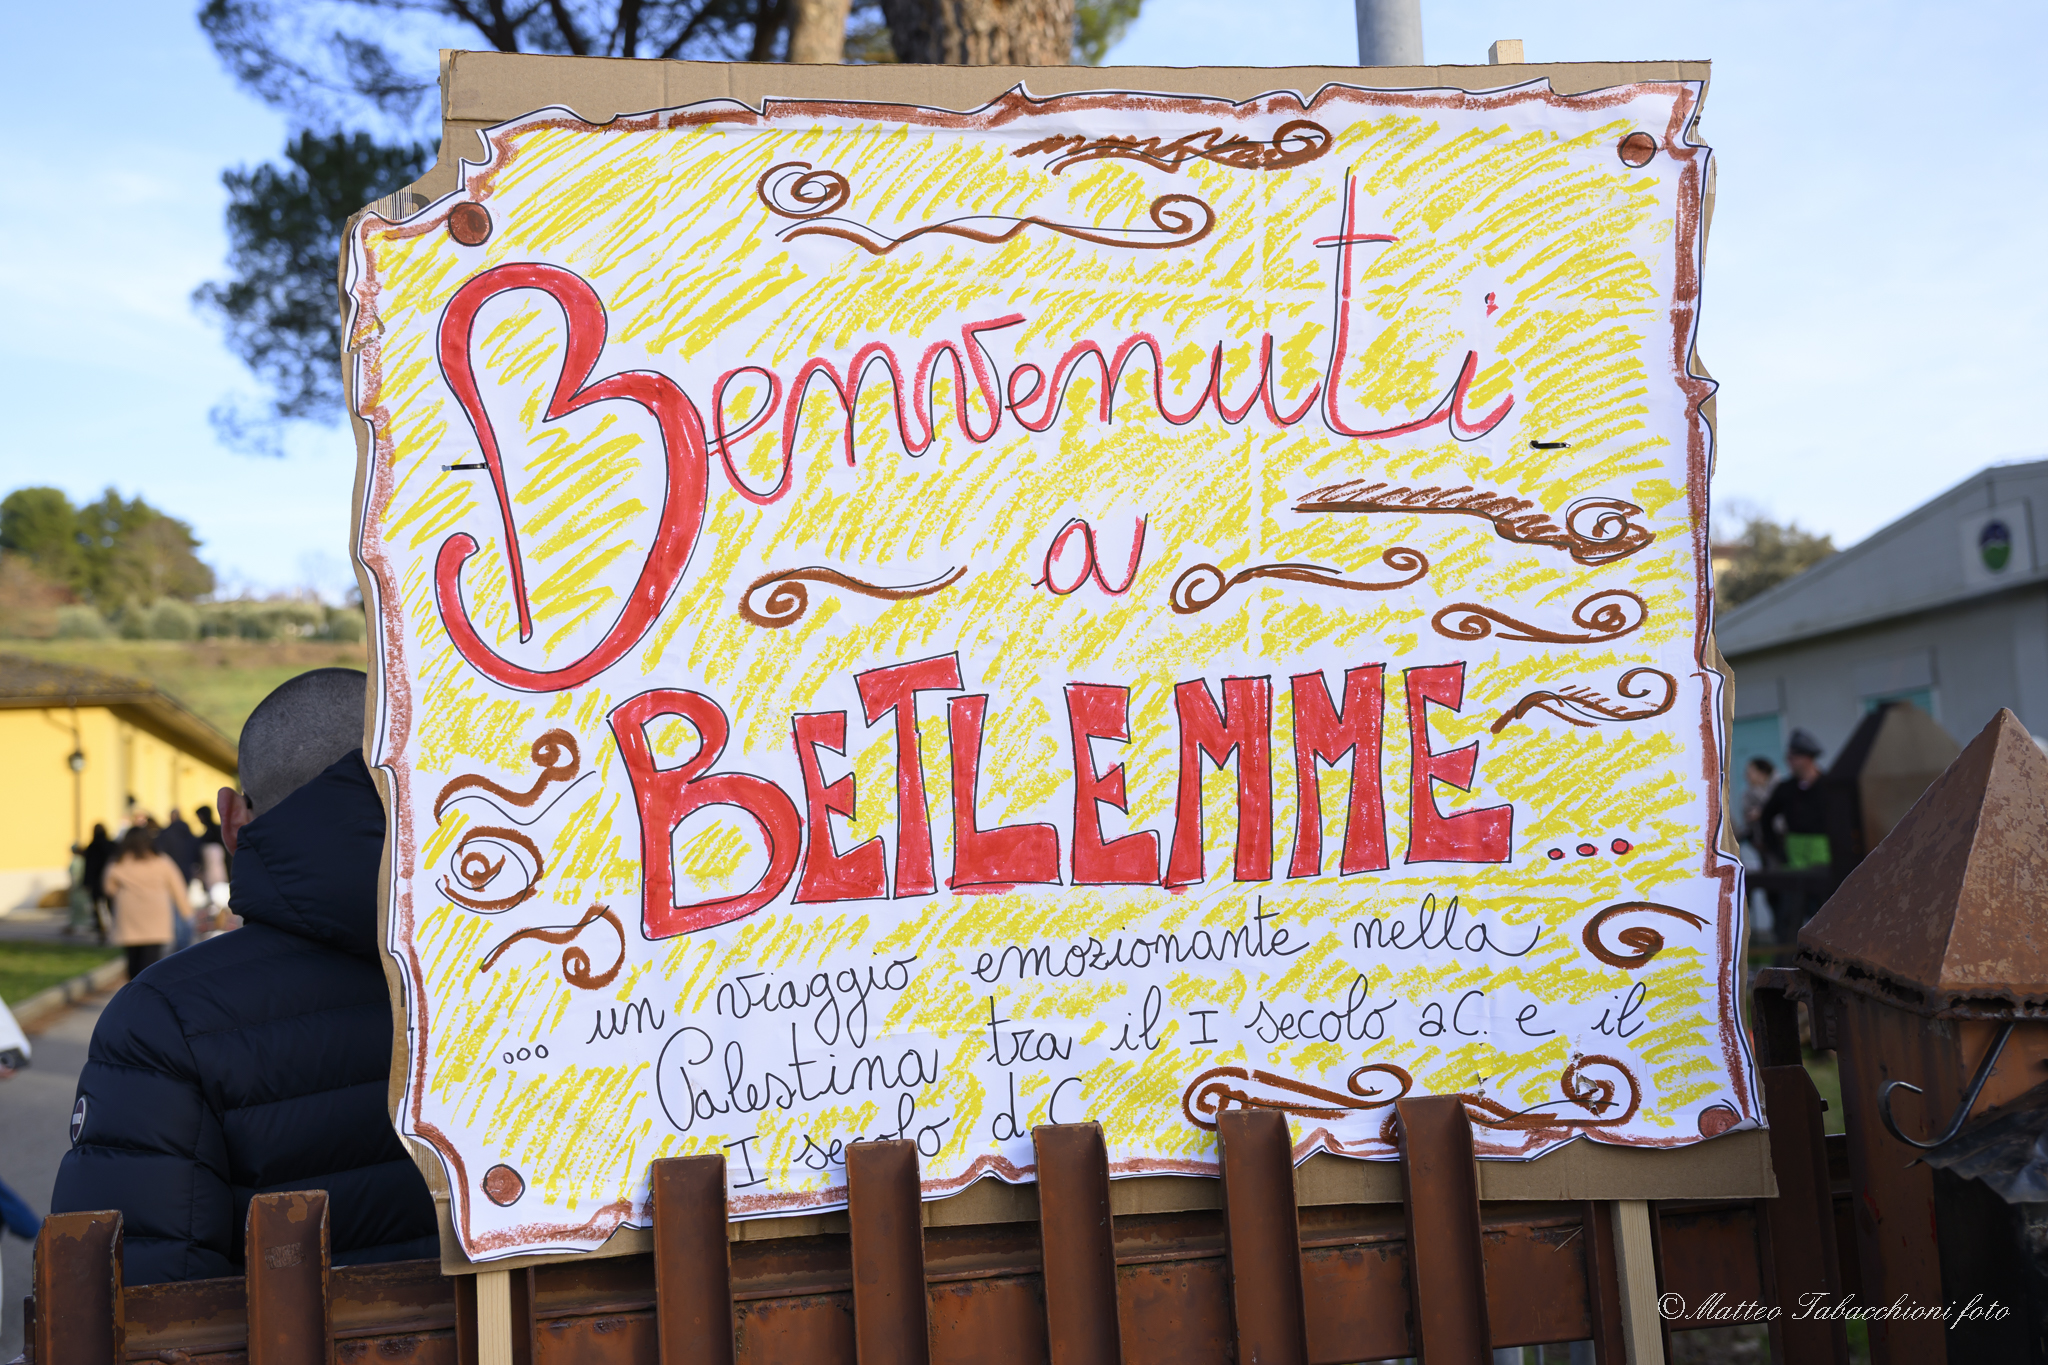 Benvenuti
a
BETLEMME...
... un viaggio emozionante nella
Palestina tra il I secolo a.C. e il
I secolo d.C.
©Matteo Tabacchioni foto